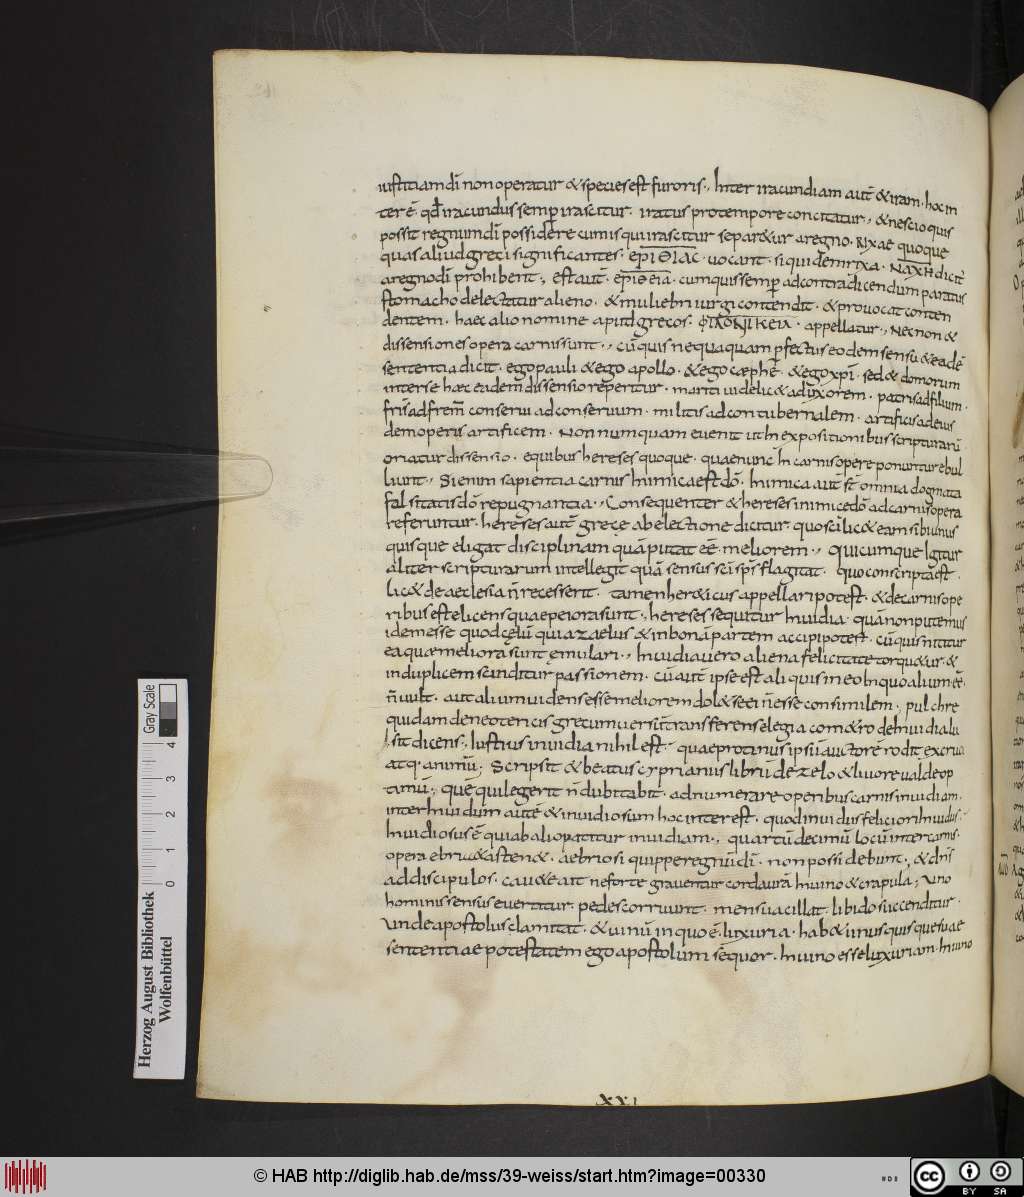 iustitiam dī non operatur & species est furoris., Inter iracundiam aut̄ & iram. hoc in
ter ē. qd̄ iracundus semp̄ irascitur. iratus pro tempore concitatur., & nescio quis
possit regnum dī possidere cum is qui irascitur separ&ur a regno. Rixae quoque
quas aliud greci significantes. ЄΡΙΘΙΑC. vocant. siquidem rixa. ΜΑΧΗ dicit̄
a regno dī prohibent., est aut̄. ЄΡΙΘЄΙΑ. cum quis semp̄ ad contradicendum paratus
stomacho delectatur alieno. & muliebri iurgio contendit. & provocat conten
dentem. haec alio nomine apud grecos. ΦΙΛΟΝΙΚЄΙΑ. appellatur., Nec non &
dissensiones opera carnis sunt., cū quis nequaquam p̄fectus eodem sensu & eadē
sententia dicit. ego pauli & ego apollo. & ego cæphę. & ego xp̄i. sed & domorum
inter se hæc eadem dissensio reperitur. mariti videlic& ad uxorem. patris ad filium.
fr̄is ad frem̄ conservi ad conservum. militis ad contubernalem. artificis ad eius
dem operis artificem. Non numquam evenit ut in expositionibus scripturarū
oriatur dissensio. e quibus hereses quoque. quae nunc in carnis opere ponuntur ebul
liunt., Si enim sapientia carnis inimica est dō. Inimica aut̄ st̄ omnia dogmata
falsitatis dō repugnantia., Consequenter & hereses inimicę dō ad carnis opera
referuntur. hereses aut̄ gręcę ab electione dicitur. quo scilic& eam sibi unus
quisque eligat disciplinam quā putat eē meliorem., quicumque igitur
aliter scripturarum intellegit quā sensus sc̄i sp̄s flagitat. quo conscripta est.
lic& de aeclesia n̄ recesserit. tamen her&icus appellari potest. & de carnis ope
ribus est elicens quae peiora sunt. hereses sequitur Invidia. quā non putemus
idem esse quod cęlū quia zaelus & in bonā partem accipi potest. cū quis nititur
ea quae meliora sunt ęmulari., Invidia vero aliena felicitate torqu&ur. &
in duplicem scinditur passionem. cū aut̄ ipse est aliquis in eo In quo alium eē.
n̄ vult. aut alium videns esse meliorem dol& se ei n̄ esse consimilem. pulchre
quidam de neotericis grecum versū transferens elegiaco m&ro de invidia lu
sit dicens., Iustius invidia nihil est. quae protinus ipsū auctorē rodit excruci
atq. animū; Scripsit & beatus cyprianus librū de zelo & livore valde op
timū., quē qui legerit n̄ dubitabit. adnumerare operibus carnis invidiam.
inter invidum autē & invidiosum hoc interest. quod invidus feliciori Invidus.
Invidiosus ē qui ab alio patitur invidiam., quartū decimū locū inter carnis.
opera ebri&as ten&. aebriosi quippe regnū dī. non possidebunt. & dn̄s
ad discipulos. cav&e ait ne forte graventur corda vr̄a In vino & crapula; Vino
hominis sensus evertitur. pedes corruunt. mens vacillat. libido succenditur.
Unde apostolus clamitat. & vinū in quo ē. luxuria. hab& unus quisque suae
sententiae potestatem ego apostolum sequor. In vino esse luxuriam. In vino
XXI
Gray Scale
0 1 2 3 4
Herzog August Bibliothek
Wolfenbüttel
© HAB http://diglib.hab.de/mss/39-weiss/start.htm?image=00330
cc BY SA